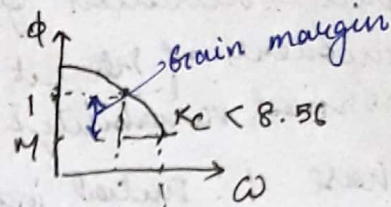 Φ
Gain margin
1
Kc < 8.56
M
ω